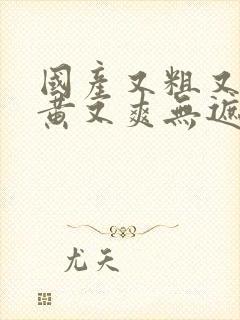 國產又粗又
黃又爽無遮
尤天